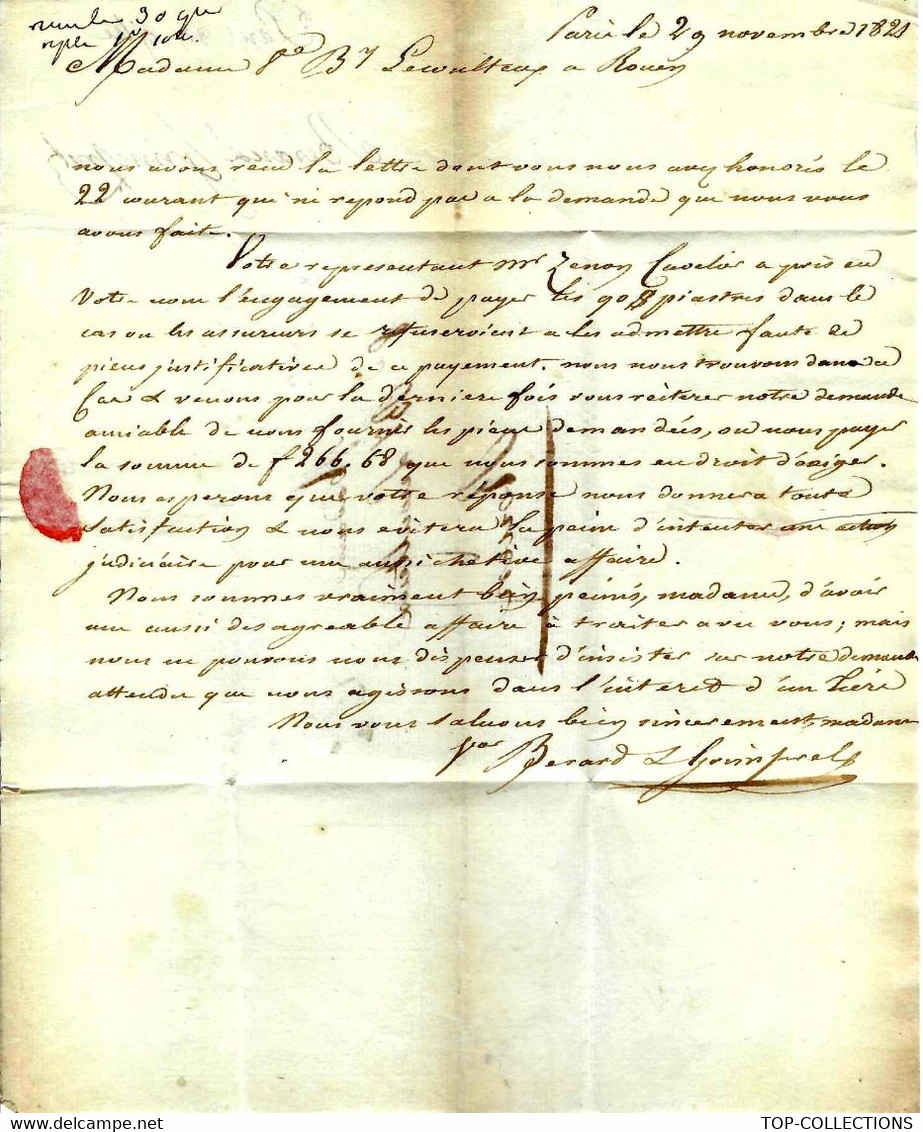 Paris le 29 novembre 1821
30
Madame B Lecoulteux a Rouen
nous avons recu la lettre dont vous nous avez honorés le
22 courant qui ne repond pas a la demande que nous vous
avons fait.
Votre representant Mr Zenon Cavelier a pris en
votre nom l'engagement de payer les 90 piastres dans le
cas ou les assureurs se refuseroient a les admettre faute de
pieces justificatives de ce payement. nous nous trouvons dans ce
Cas & venons pour la derniere fois vous réiterer notre demande
amiable de nous fournir les pieces demandées, ou nous payer
la somme de f 266.68 que nous sommes en droit d'exiger.
Nous esperons que votre réponse nous donnera toute
satisfaction & nous evitera la peine d'intenter une action
judiciaire pour une aussi chetive affaire.
Nous sommes vraiment bien peinés, madame, d'avoir
une aussi desagreable affaire à traiter avec vous; mais
nous ne pouvons nous dispenser d'insister sur notre demande
attendu que nous agissons dans l'interet d'un tiers
Nous vous saluons bien sincerement, madame
Berard &
TOP-COLLECTIONS